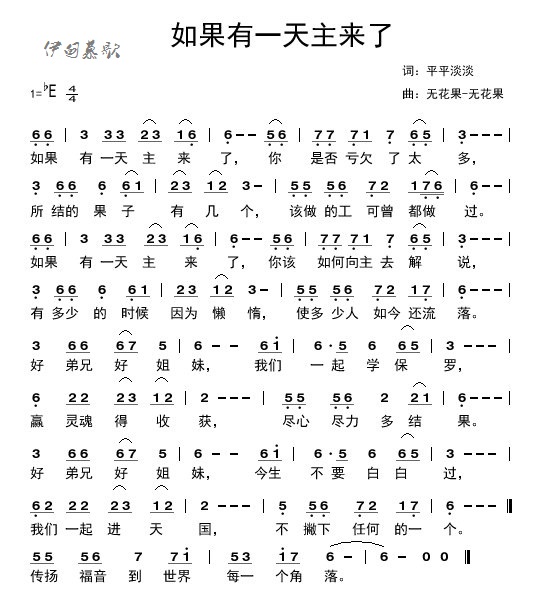 如果有一天主来了
伊甸慕歌
词：平平淡淡
1=♭E 4/4 曲：无花果-无花果
66 | 3 33 23 16 | 6 - - 56 | 77 71 7 65 | 3 - - - |
如果 有 一天 主 来 了， 你 是否 亏欠 了 太 多，
3 66 6 61 | 23 12 3 - | 55 56 72 176 | 6 - - - |
所 结的 果 子 有 几 个， 该做 的工 可曾 都做 过。
66 | 3 33 23 16 | 6 - - 56 | 77 71 7 65 | 3 - - - |
如果 有 一天 主 来 了， 你该 如何向主 去 解 说，
3 66 6 61 | 23 12 3 - | 55 56 72 17 | 6 - - - |
有 多少 的 时候 因为 懒 惰， 使多 少人 如今 还流 落。
3 66 67 5 | 6 - - 61 | 6·5 6 65 | 3 - - - |
好 弟兄 好 姐 妹， 我们 一 起 学 保 罗，
6 22 23 12 | 2 - - - | 55 56 2 21 | 6 - - - |
赢 灵魂 得 收 获， 尽心 尽力 多 结 果。
3 66 67 5 | 6 - - 61 | 6·5 6 65 | 3 - - - |
好 弟兄 好 姐 妹， 今生 不 要 白 白 过，
62 22 23 12 | 2 - - - | 5 56 72 17 | 6 - - - ‖
我们 一起 进 天 国， 不 撇下 任何 的一 个。
55 56 7 71 | 53 17 6 - | 6 - 0 0 ‖
传扬 福音 到 世界 每一 个角 落。